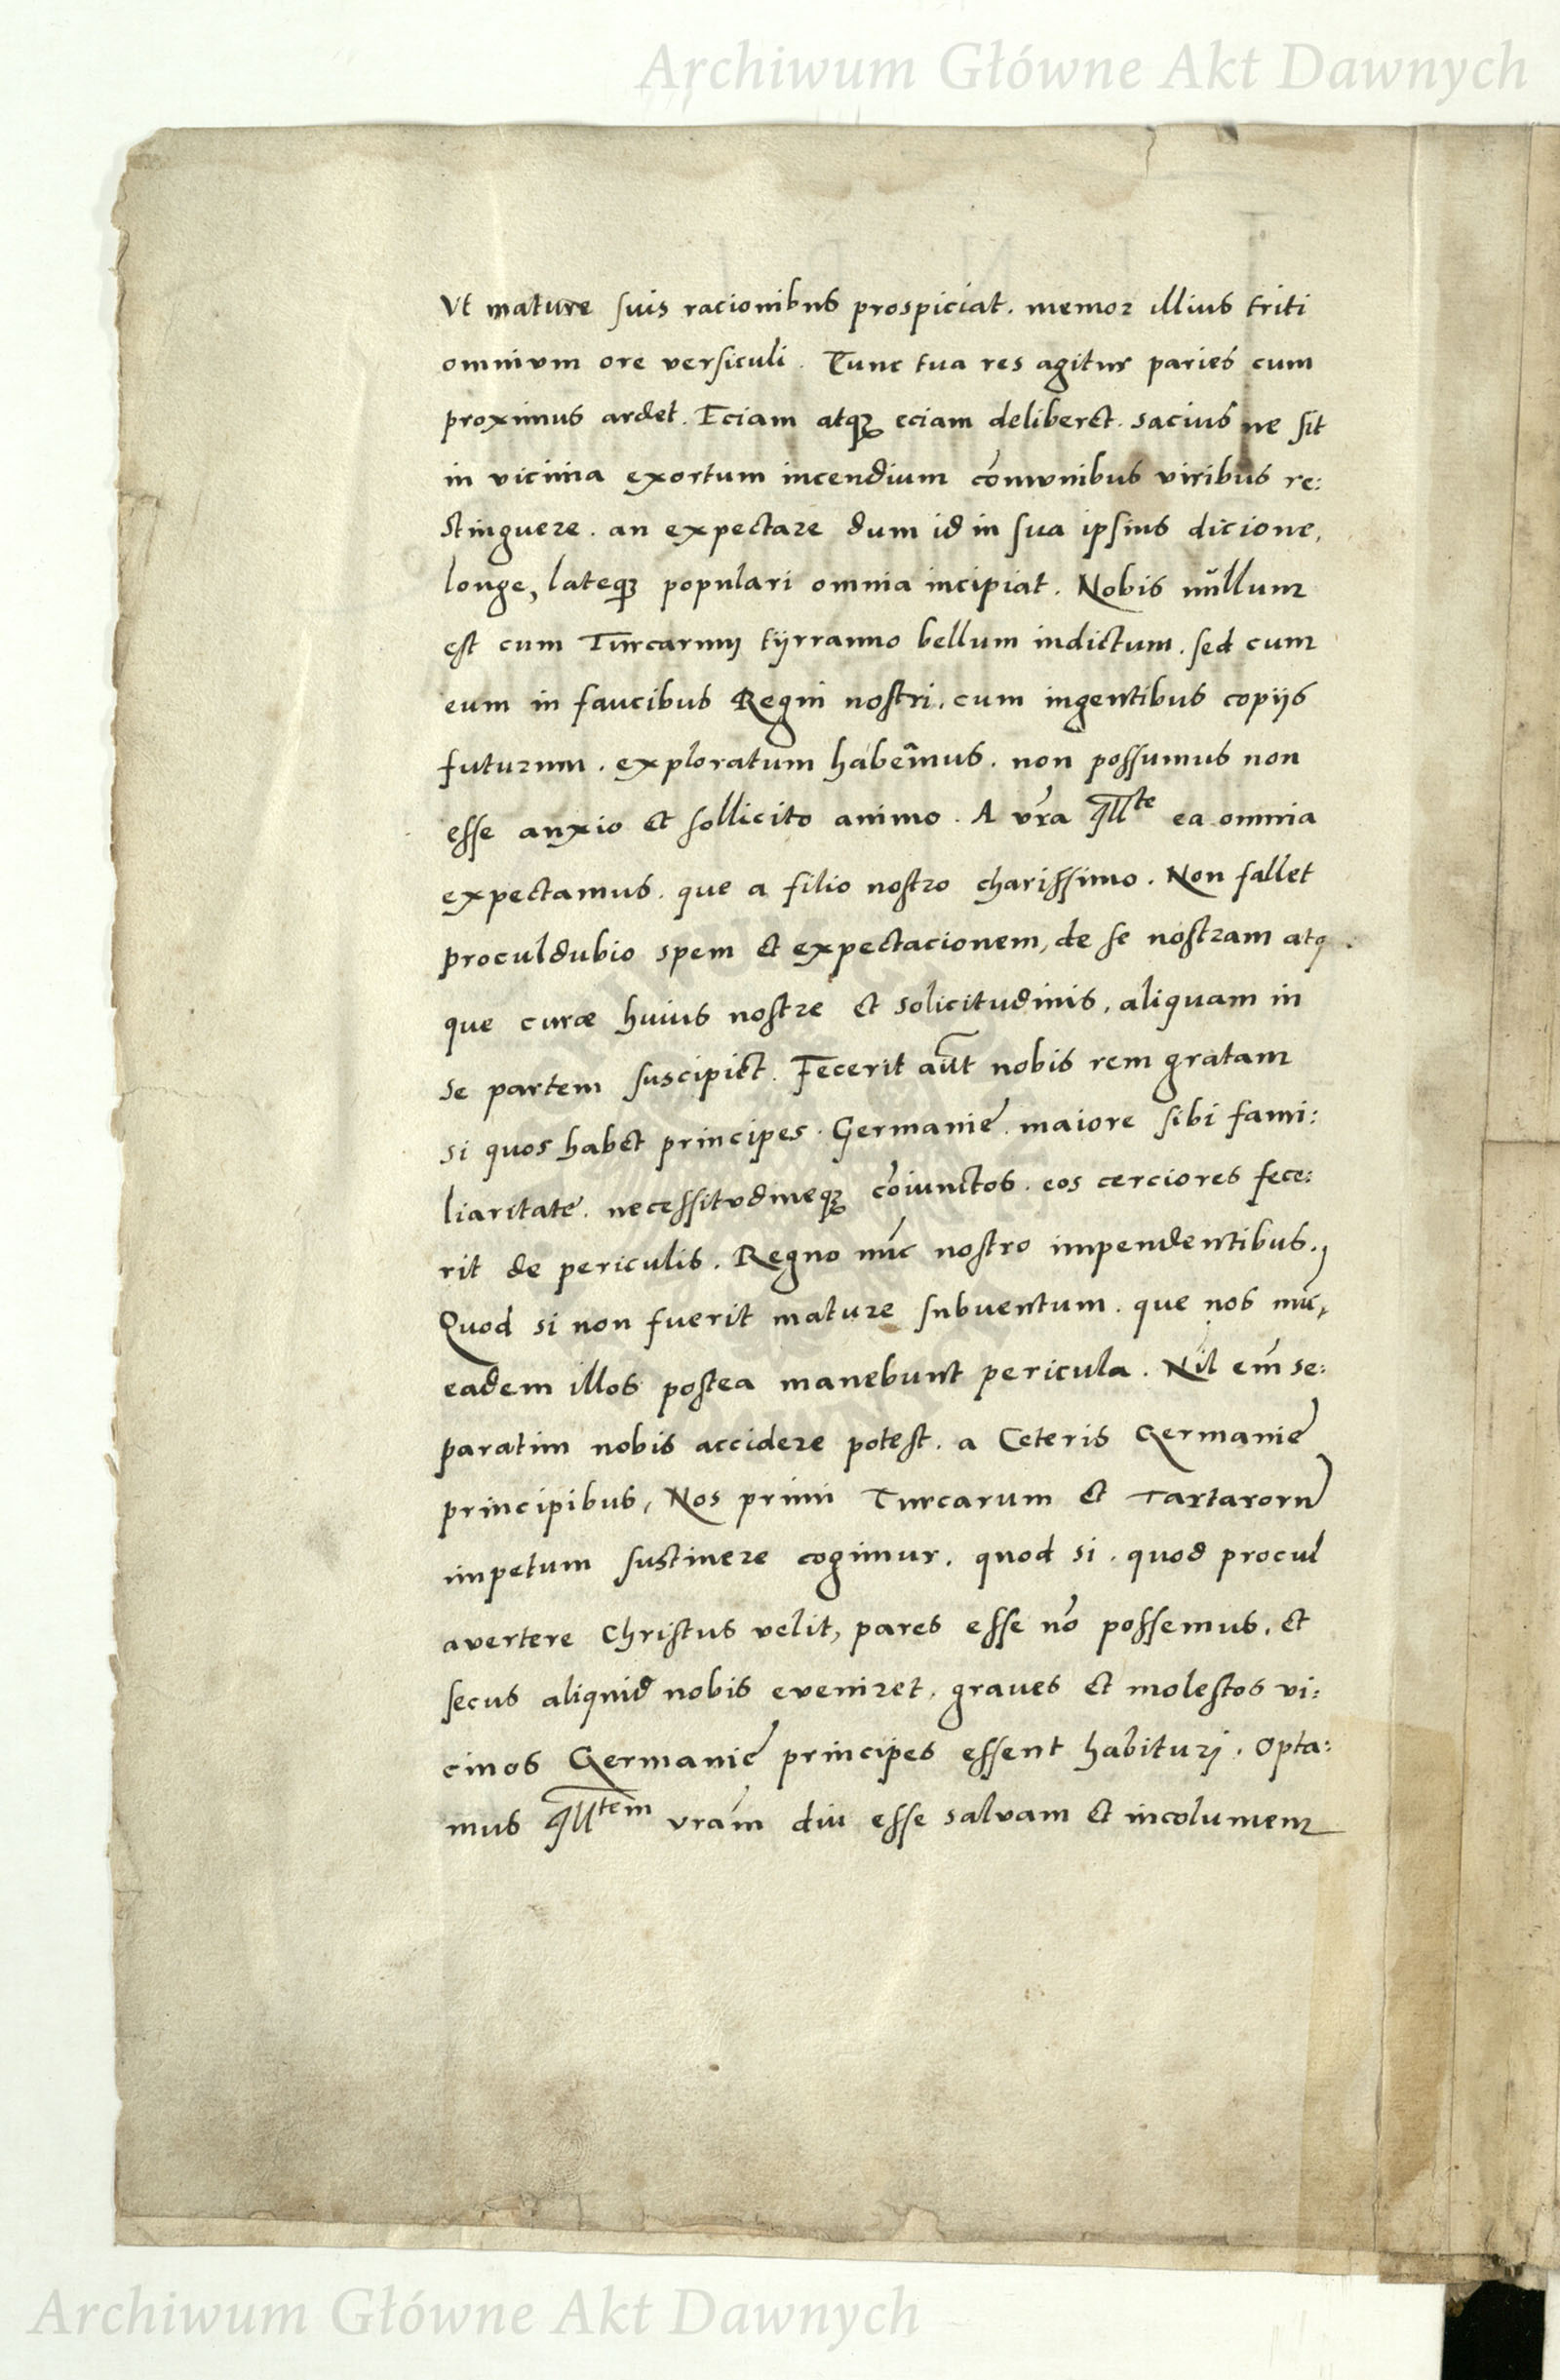 Archiwum Główne Akt Dawnych
Vt mature suis racionibus prospiciat. memor illius triti
omnium ore versiculi. Tunc tua res agitur paries cum
proximus ardet. Eciam atqꝫ eciam deliberet. sacius ne sit
in vicinia exortum incendium com̄unibus viribus re:
stinguere. an expectare dum id in sua ipsius dicione,
longe, lateqꝫ populari omnia incipiat. Nobis nullum
est cum Turcarum tÿrranno bellum indictum. sed cum
eum in faucibus Regni nostri. cum ingentibus copijs
futurum. exploratum habemus. non possumus non
esse anxio et sollicito animo. A vr̄a Illte ea omnia
expectamus. que a filio nostro charissimo. Non fallet
proculdubio spem et expectacionem, de se nostram atq
que curæ huius nostre et solicitudinis, aliquam in
se partem suscipiet. Fecerit aūt nobis rem gratam
si quos habet principes. Germanie. maiore sibi fami:
liaritate. necessitudineqꝫ cōiunctos. eos cerciores fece:
rit de periculis. Regno nūc nostro impendentibus.,
Quod si non fuerit mature subventum. que nos nūc,
eadem illos postea manebunt pericula. Nil em̄ se:
paratim nobis accidere potest. a Ceteris Germanie
principibus, Nos primi Turcarum et Tartarorū
impetum sustinere cogimur. quod si. quod procul
avertere Christus velit, pares esse nō possemus. et
secus aliquid nobis eveniret. graues et molestos vi:
cinos Germanie principes essent habituri. Opta:
mus Illtem vram̄ diu esse salvam et incolumem
Archiwum Główne Akt Dawnych